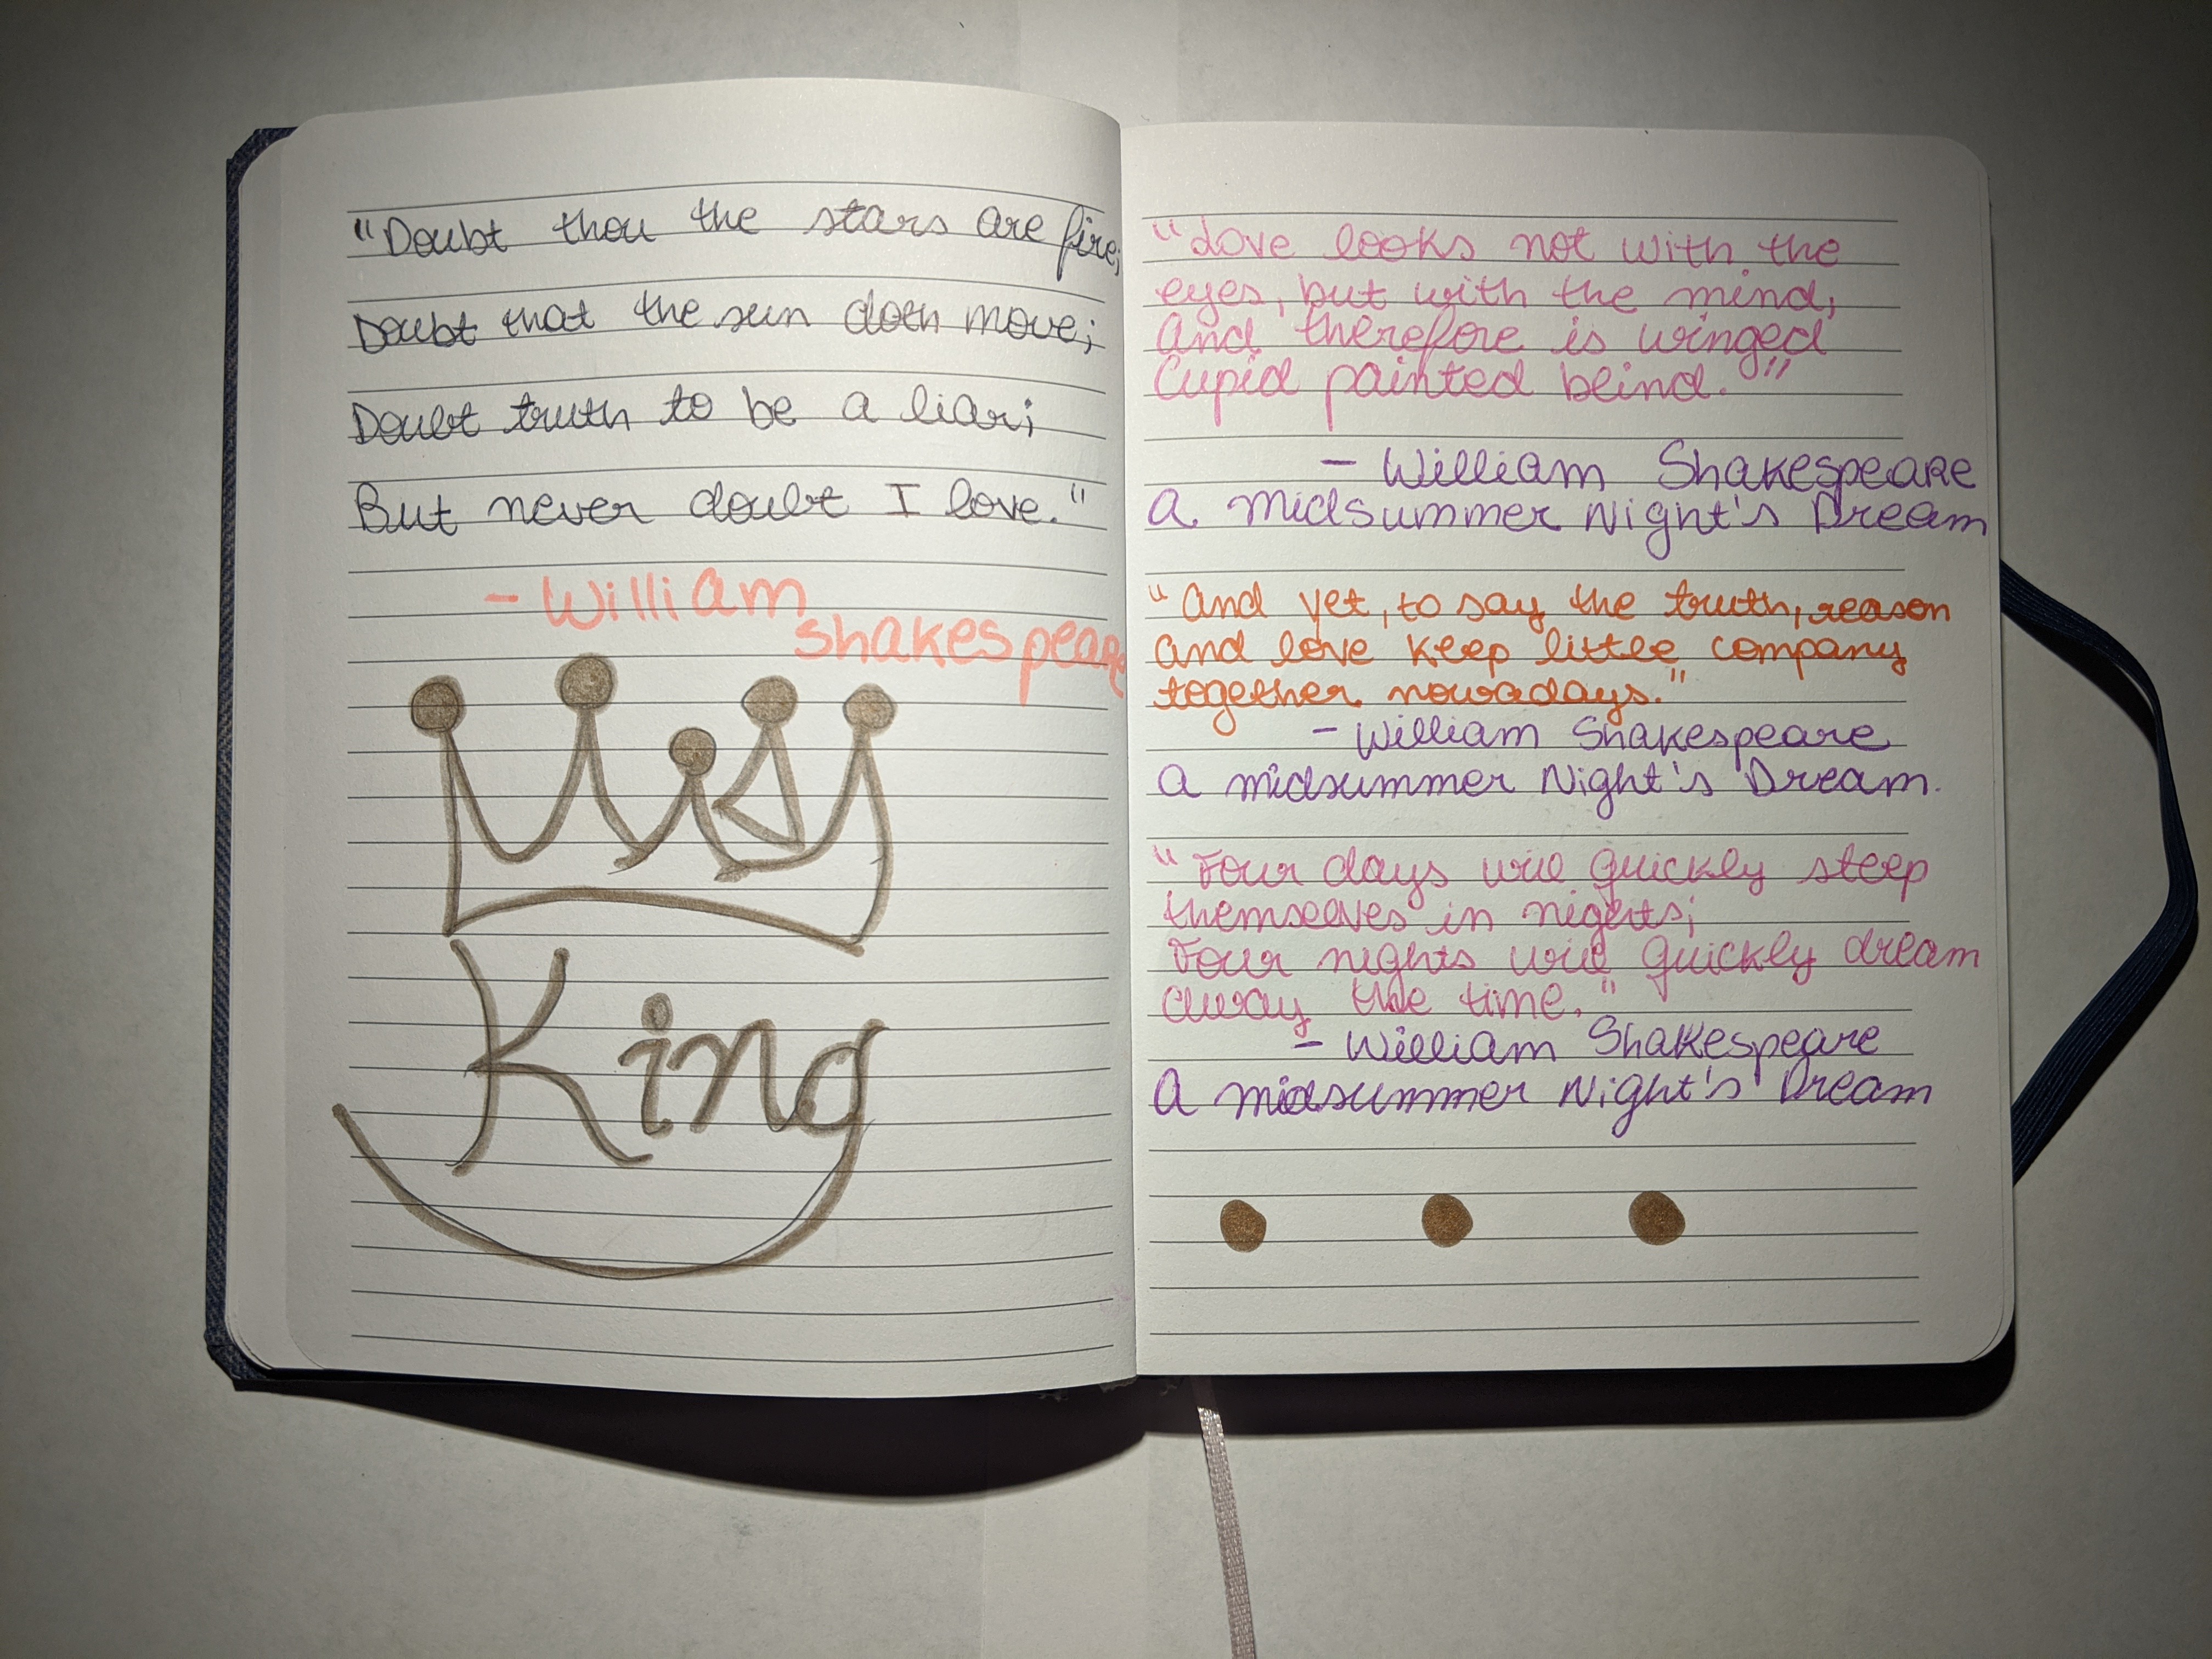 "Doubt thou the stars are fire;
Doubt that the sun doth move;
Doubt truth to be a liar;
But never doubt I love."
- William
shakespeare
King
"Love looks not with the
eyes, but with the mind,
And therefore is winged
Cupid painted blind."
- William Shakespeare
A Midsummer Night's Dream
"And yet, to say the truth, reason
and love keep little company
together nowadays."
- William Shakespeare
A midsummer Night's Dream.
"Four days will quickly steep
themselves in nights;
Four nights will quickly dream
away the time."
- William Shakespeare
A midsummer Night's Dream